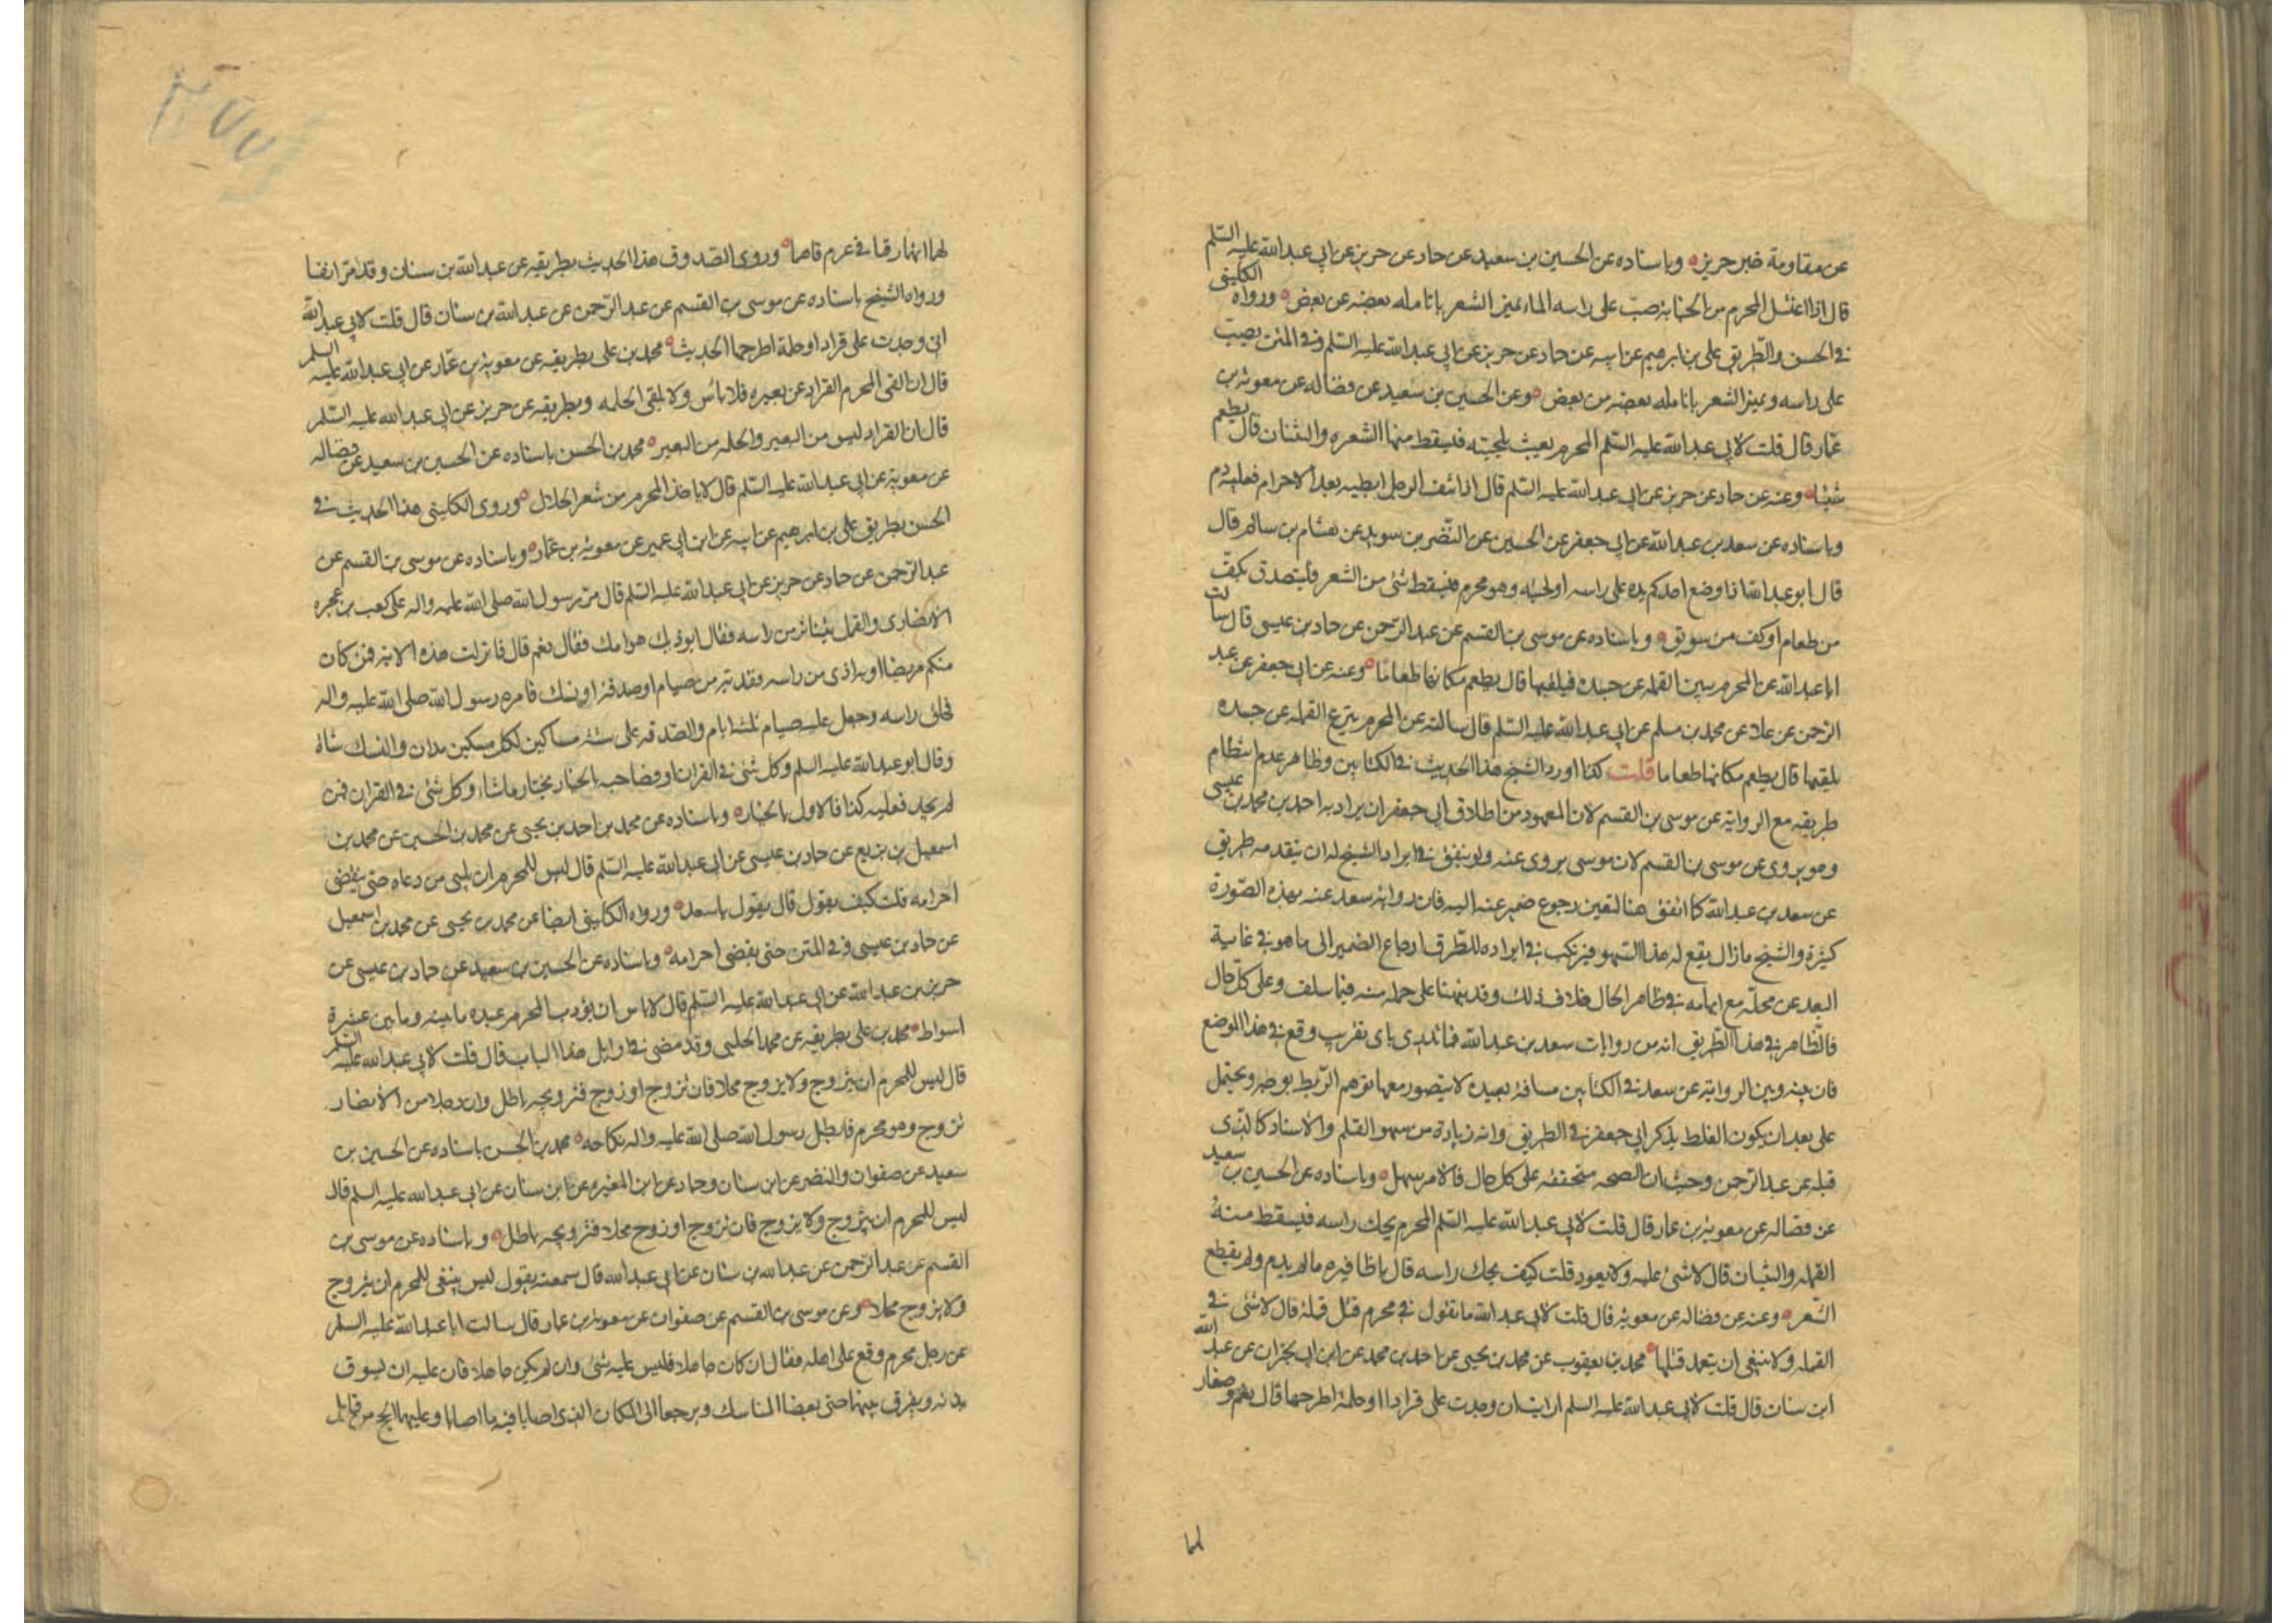 عن مقاومة خبر حريز وباسناده عن الحسين بن سعيد عن حماد عن حريز عن ابي عبدالله عليه السلم
قال اذا اغتسل المحرم من الجنابة صبّ على راسه الماء يميز الشعر بانامله بعضه عن بعض ورواه الكليني
في الحسن والطريق علي بن ابرهيم عن ابيه عن حماد عن حريز عن ابي عبدالله عليه السلم وفي المتن يصب
على راسه ويميز الشعر بانامله بعضه من بعض وعن الحسين بن سعيد عن فضاله عن معوية بن
عمار قال قلت لابي عبدالله عليه السلم المحرم يعبث بلحيته فيسقط منها الشعره والثنتان قال يطعم
شيئا وعنه عن حماد عن حريز عن ابي عبدالله عليه السلم قال اذا نتف الرجل ابطيه بعد الاحرام فعليه دم
وباسناده عن سعد بن عبدالله عن ابي جعفر عن الحسين عن النضر بن سويد عن هشام بن سالم قال
قال ابو عبدالله اذا وضع احدكم يده على راسه او لحيته وهو محرم فيسقط شئ من الشعر فليتصدق بكف
من طعام او كف من سويق وباسناده عن موسى بن القسم عن عبد الرحمن عن حماد بن عيسى قال سالت
ابا عبدالله عن المحرم يبين القمله عن جسده فيلقيها قال يطعم مكانها طعاما وعنه عن ابي جعفر عن عبد
الرحمن عن علاء عن محمد بن مسلم عن ابي عبدالله عليه السلم قال سالته عن المحرم ينزع القمله عن جسده
يلقيها قال يطعم مكانها طعاما قلت كذا اورد الشيخ هذا الحديث في الكتابين وظاهر عدم انتظام
طريقه مع الرواية عن موسى بن القسم لان المعهود من اطلاق ابي جعفر ان يراد به احمد بن محمد بن عيسى
وهو يروى عن موسى بن القسم لان موسى يروى عنه ولو يتفق في ايراد الشيخ له ان يتقدمه طريق
عن سعد بن عبدالله كما اتفق هنا لتعين رجوع ضمير عنه اليه فان رواية سعد عنه بهذه الصورة
كثيرة والشيخ ما زال يقع له هذا السهو فيرتكب في ايراده للطرق ارجاع الضمير الى ما هو في غاية
البعد عن محله مع ايهامه في ظاهر الحال خلاف ذلك وقد نبهنا على جملة منه فيما سلف وعلى كل حال
فالظاهر في هذا الطريق انه من روايات سعد بن عبدالله فما ندرى باى تقريب وقع في هذا الموضع
فان بينه وبين الرواية عن سعد في الكتابين مسافة بعيده لا يتصور معها توهم الربط بوجه ويحتمل
على بعد ان يكون الغلط بذكر ابي جعفر في الطريق وانه زيادة من سهو القلم والاسناد كالذى
قبله عن عبد الرحمن وحيث ان الصحه متحققه على كل حال فالامر سهل وباسناده عن الحسين بن سعيد
عن فضاله عن معوية بن عمار قال قلت لابي عبدالله عليه السلم المحرم يحك راسه فيسقط منه
القمله والثنتان قال لا شئ عليه ولا يعود قلت كيف يحك راسه قال باظافيره ما لم يدم ولم يقطع
الشعر وعنه عن فضاله عن معوية قال قلت لابي عبدالله ما تقول في محرم قتل قملة قال لا شئ في
القمله ولا ينبغى ان يتعمد قتلها محمد بن يعقوب عن محمد بن يحيى عن احمد بن محمد عن ابن ابي نجران عن عبدالله
ابن سنان قال قلت لابي عبدالله عليه السلم ارايت ان وجدت على قرادا او حلمة اطرحهما قال نعم وصغار
لهما
لهما انهما رقيا في غير مرقاهما وروى الصدوق هذا الحديث بطريقه عن عبدالله بن سنان وقد مر انفا
ورواه الشيخ باسناده عن موسى بن القسم عن عبد الرحمن عن عبدالله بن سنان قال قلت لابي عبدالله
انى وجدت على قراد او حلمة اطرحهما الحديث محمد بن على بطريقه عن معوية بن عمار عن ابي عبدالله عليه السلم
قال ان القى المحرم القراد عن بعيره فلا باس ولا يلقى الحلمه وبطريقه عن حريز عن ابي عبدالله عليه السلم
قال ان القراد ليس من البعير والحلمه من البعير محمد بن الحسن باسناده عن الحسين بن سعيد عن فضاله
عن معوية عن ابي عبدالله عليه السلم قال لا ياخذ المحرم من شعر الحلال وروى الكليني هذا الحديث في
الحسن بطريق على بن ابرهيم عن ابيه عن ابن ابي عمير عن معوية بن عمار وباسناده عن موسى بن القسم عن
عبد الرحمن عن حماد عن حريز عن ابي عبدالله عليه السلم قال مر رسول الله صلى الله عليه واله على كعب بن عجره
الانصارى والقمل يتناثر من راسه فقال ايوذيك هوامك فقال نعم قال فانزلت هذه الايه فمن كان
منكم مريضا او به اذى من راسه ففدية من صيام او صدقة او نسك فامره رسول الله صلى الله عليه واله
فحلق راسه وجعل عليه صيام ثلثة ايام والصدقه على ستة مساكين لكل مسكين مدان والنسك شاة
وقال ابو عبدالله عليه السلم وكل شئ في القران او فصاحبه بالخيار يختار ما شاء وكل شئ في القران فمن
لم يجد فعليه كذا فالاول بالخيار وباسناده عن محمد بن احمد بن يحيى عن محمد بن الحسين عن محمد بن
اسمعيل بن بزيع عن حماد بن عيسى عن ابي عبدالله عليه السلم قال ليس للمحرم ان يلبى من دعاه حتى يقضى
احرامه قلت كيف يقول قال يقول يا سعد ورواه الكليني ايضا عن محمد بن يحيى عن محمد بن اسمعيل
عن حماد بن عيسى وفي المتن حتى يقضى احرامه وباسناده عن الحسين بن سعيد عن حماد بن عيسى عن
حريز بن عبدالله عن ابي عبدالله عليه السلم قال لا باس ان يؤدب المحرم عبده ما بينه وما بين عشرة
اسواط محمد بن على بطريقه عن محمد الحلبي وقد مضى في اوايل هذا الباب قال قلت لابي عبدالله عليه السلم
قال ليس للمحرم ان يتزوج ولا يزوج محلا فان تزوج او زوج فتزويجه باطل وان رجلا من الانصار
تزوج وهو محرم فابطل رسول الله صلى الله عليه واله نكاحه محمد بن الحسن باسناده عن الحسين بن
سعيد عن صفوان والنضر عن ابن سنان وحماد عن ابن المغيره عن ابن سنان عن ابي عبدالله عليه السلم قال
ليس للمحرم ان يتزوج ولا يزوج فان تزوج او زوج محلا فتزويجه باطل وباسناده عن موسى بن
القسم عن عبد الرحمن عن عبدالله بن سنان عن ابي عبدالله قال سمعته يقول ليس ينبغى للمحرم ان يتزوج
ولا يزوج محلا وعن موسى بن القسم عن صفوان عن معوية بن عمار قال سالت ابا عبدالله عليه السلم
عن رجل محرم وقع على اهله فقال ان كان جاهلا فليس عليه شئ وان لم يكن جاهلا فان عليه ان يسوق
بدنه ويفرق بينهما حتى يقضيا المناسك ويرجعا الى المكان الذى اصابا فيه ما اصابا وعليهما الحج من قابل